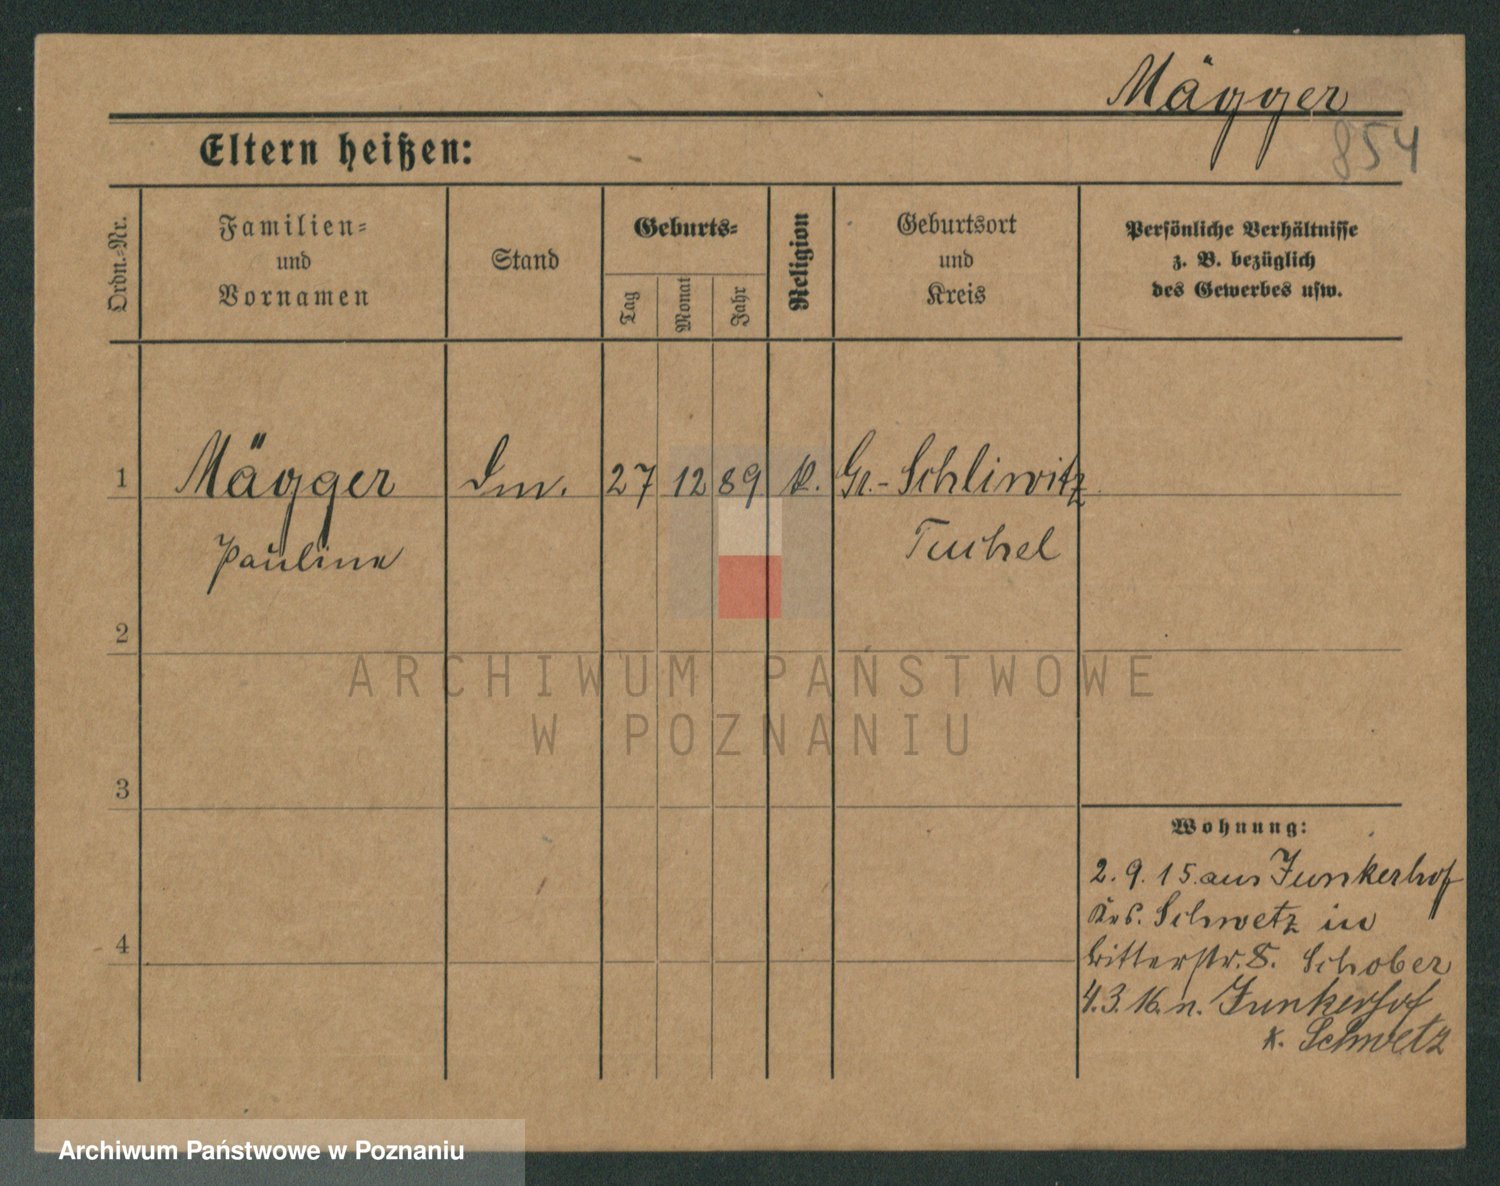 Mägger
854
Eltern heißen:
Ordn.-Nr.
Familien-
und
Vornamen
Stand
Geburts-
Tag
Monat
Jahr
Religion
Geburtsort
und
Kreis
Persönliche Verhältnisse
z. B. bezüglich
des Gewerbes usw.
1 Mägger 27 12 89 k. Gr.-Schliwitz
Pauline Tuchel
2
ARCHIWUM PAŃSTWOWE
W POZNANIU
3
Wohnung:
2.9.15. aus Junkerhof
Krs. Schwetz in
Ritterstr. 8. Schober
4.3.16. n. Junkerhof
K. Schwetz
4
Archiwum Państwowe w Poznaniu